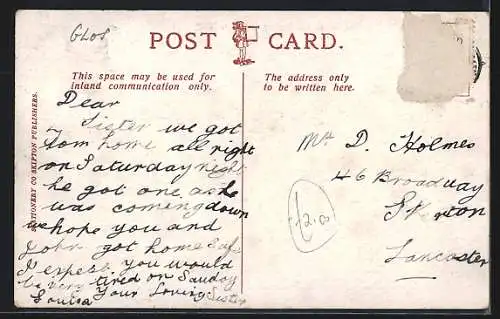 GLOS
POST CARD.
This space may be used for
inland communication only.
The address only
to be written here.
STATIONERY CO SKIPTON PUBLISHERS.
Dear
Sister we got
Tom home all right
on Saturday night
he got one as he
was coming down
we hope you and
John got home safe
I expect you would
be very tired on Sunday
Your Loving Sister
Louisa
Mrs D. Holmes
46 Broadway
Skerton
Lancaster
12.0